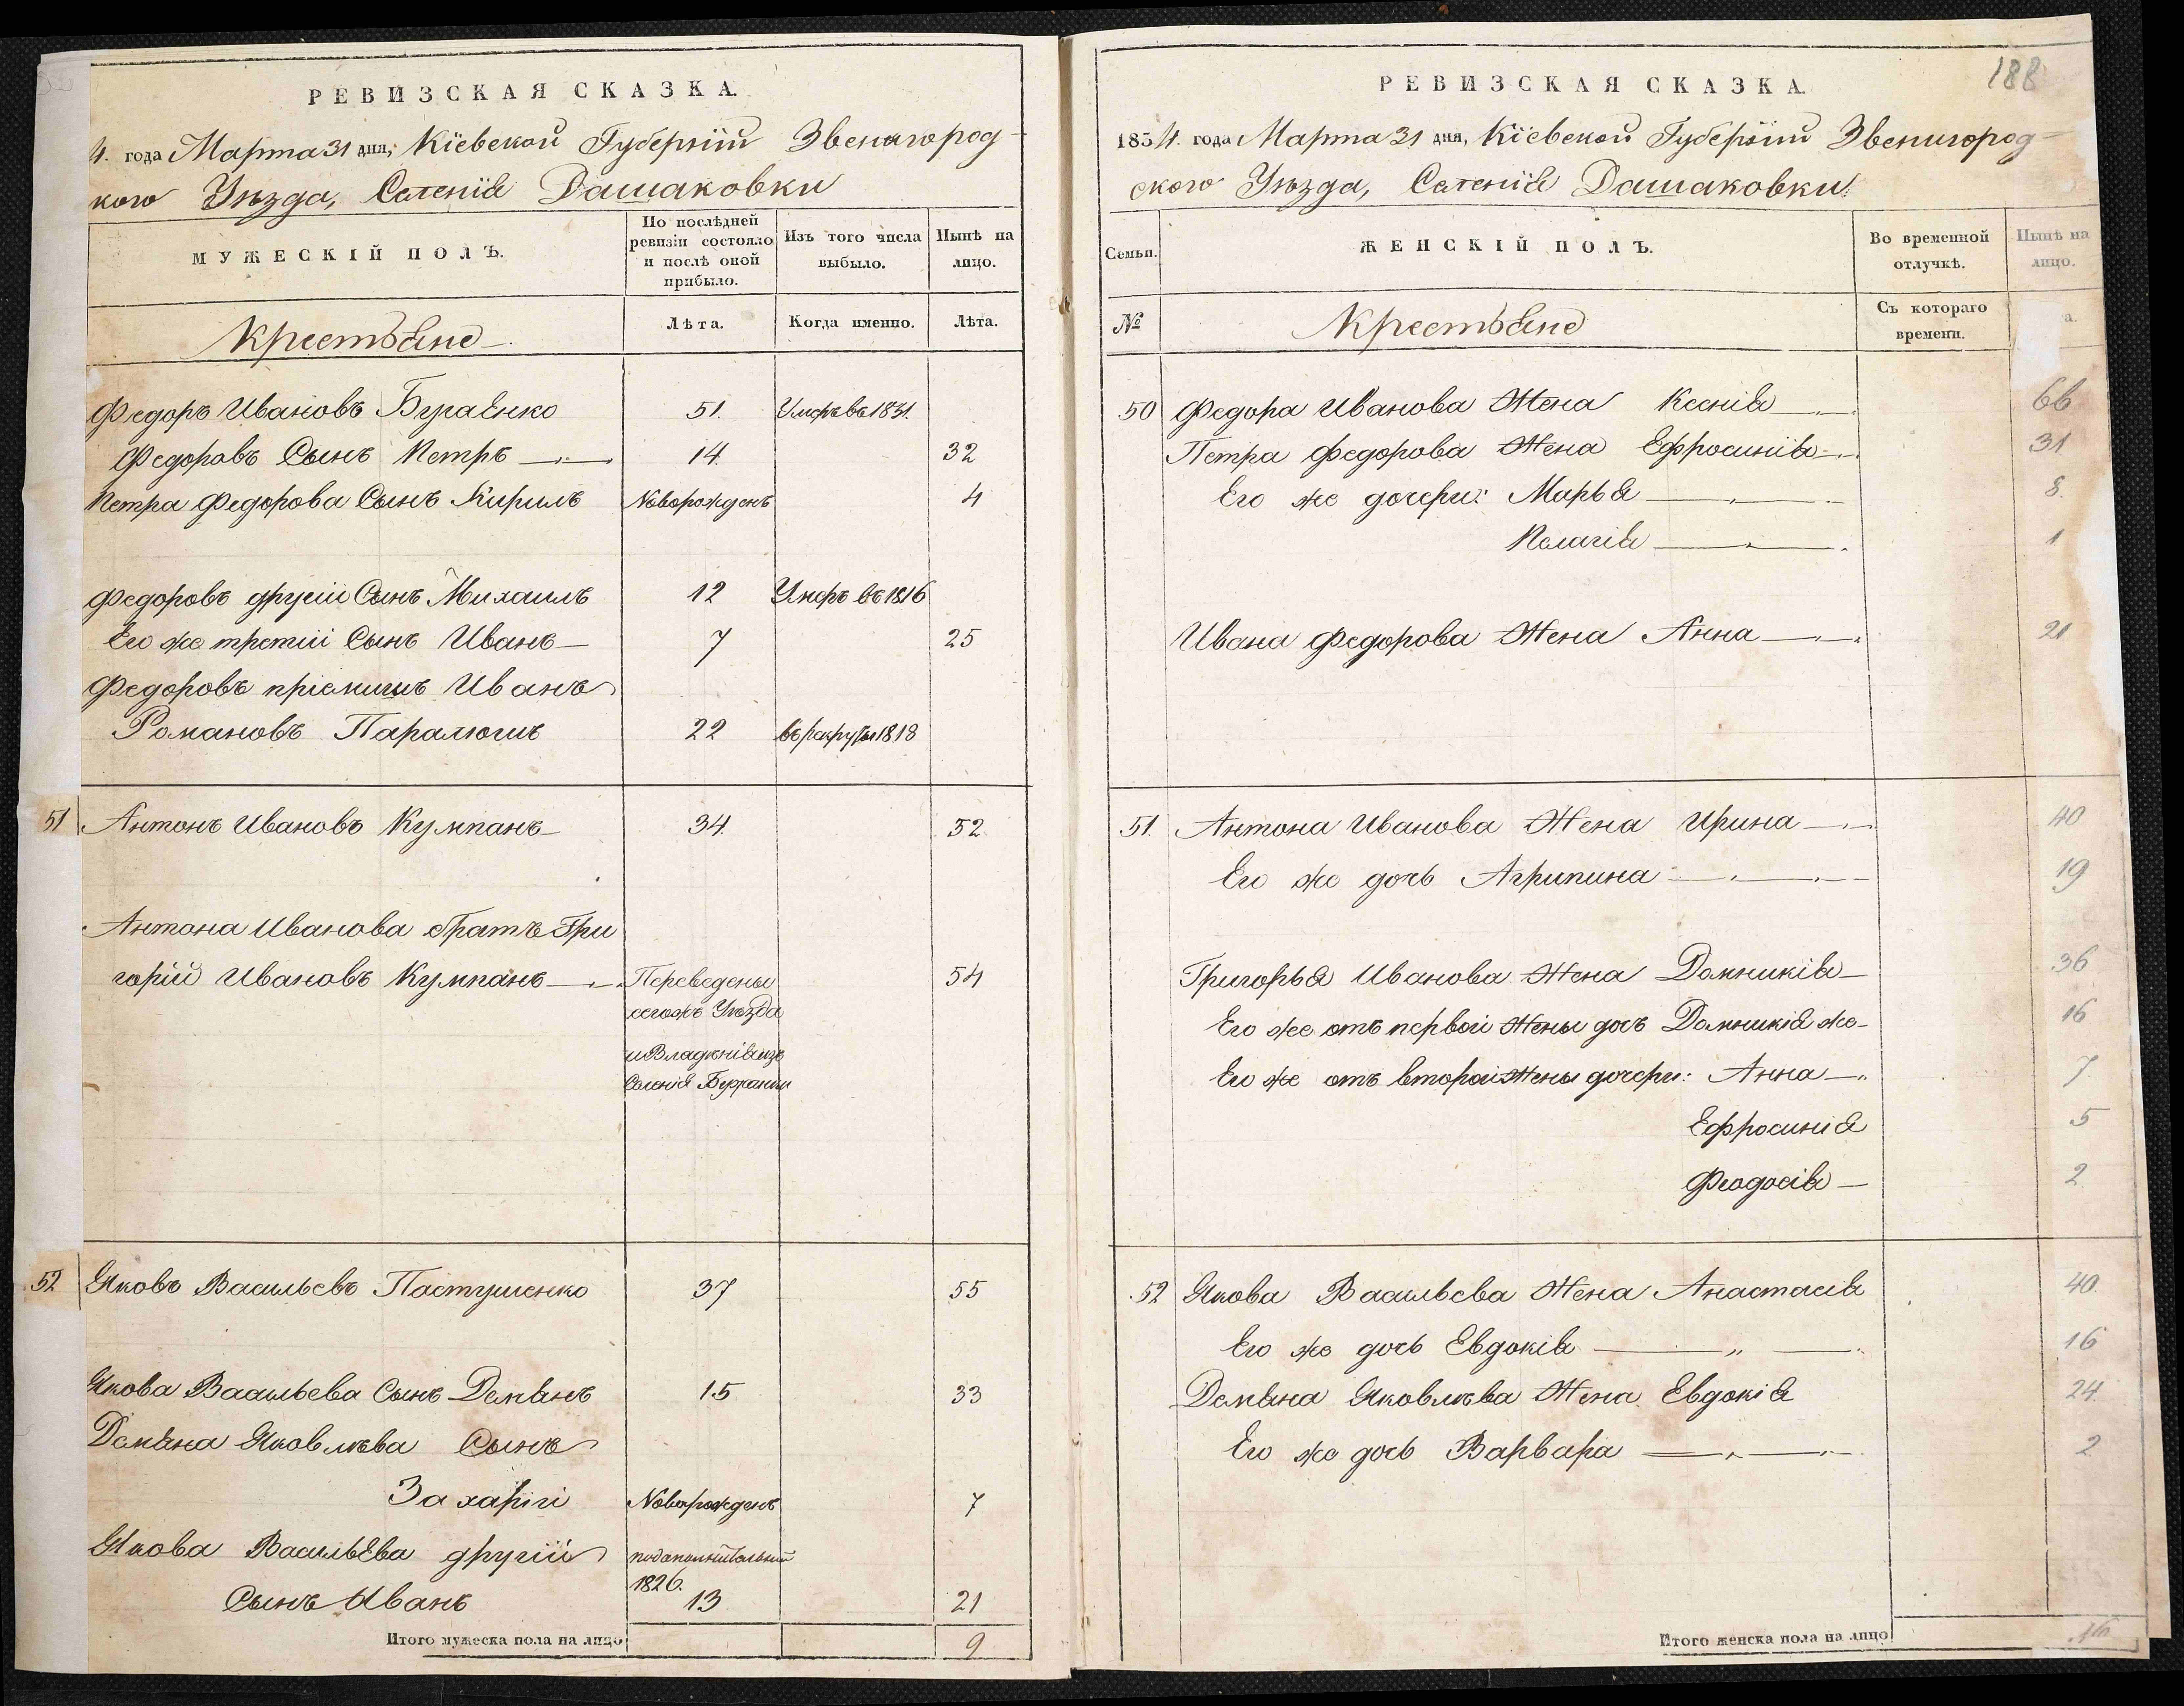 РЕВИЗСКАЯ СКАЗКА.
4. года Марта 31 дня, Кіевской Губерніи Звенигород-
кого Уѣзда, Селенія Дашаковки
МУЖЕСКІЙ ПОЛЪ.
По послѣдней ревизіи состояло и послѣ оной прибыло.
Изъ того числа выбыло.
Нынѣ на лицо.
Крестьяне
Лѣта.
Когда именно.
Лѣта.
Федоръ Ивановъ 51. Умеръ въ 1831.
Федоровъ Сынъ Петръ 14. 32
Петра Федорова Сынъ Кирилъ Новорожденъ 4
Федоровъ другій Сынъ Михаилъ 12 Умеръ въ 1816
Его же третій Сынъ Иванъ 7 25
Федоровъ пріемишъ Иванъ
Романовъ 22 въ рекруты 1818
51 Антонъ Ивановъ Кумпанъ 34. 52
Антона Иванова братъ Гри
горій Ивановъ Кумпанъ Переведены 54
сегожъ Уѣзда
и Владѣнія изъ
Селенія
52 Яковъ Васильевъ Пастушенко 37 55
Якова Васильева Сынъ Демянъ 15 33
Демяна Яковлѣва Сынъ
Захарій Новорожденъ 7
Якова Васильева другій
1826.
Сынъ Иванъ 13 21
Итого мужеска пола на лицо 9
188
РЕВИЗСКАЯ СКАЗКА.
1834. года Марта 31 дня, Кіевской Губерніи Звенигород-
ского Уѣзда, Селенія Дашаковки
Семьи.
ЖЕНСКІЙ ПОЛЪ.
Во временной отлучкѣ.
Нынѣ на лицо.
№
Крестьяне
Съ котораго времени.
а.
50 Федора Иванова Жена Ксенія 66
Петра Федорова Жена Ефросинія 31
Его же дочери: Марья 8.
Пелагія 1
Ивана Федорова Жена Анна 21
51. Антона Иванова Жена Ирина 40
Его же дочь Агрипина 19
Григорья Иванова Жена Домникія 36
Его же отъ первой Жены дочь Домникія же 16
Его же отъ второй Жены дочери: Анна 7
Ефросинія 5
Феодосія 2
52 Якова Васильева Жена Анастасія 40.
Его же дочь Евдокія 16
Демяна Яковлѣва Жена Евдокія 24.
Его же дочь Варвара 2
Итого женска пола на лицо